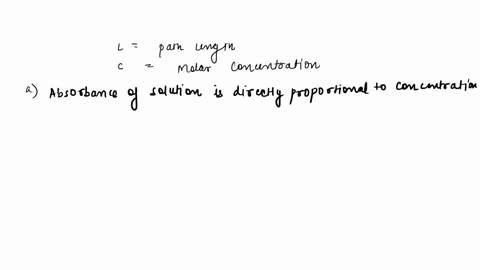 L = path length
C = Molar Concentration
a) Absorbance of solution is directly proportional to concentration